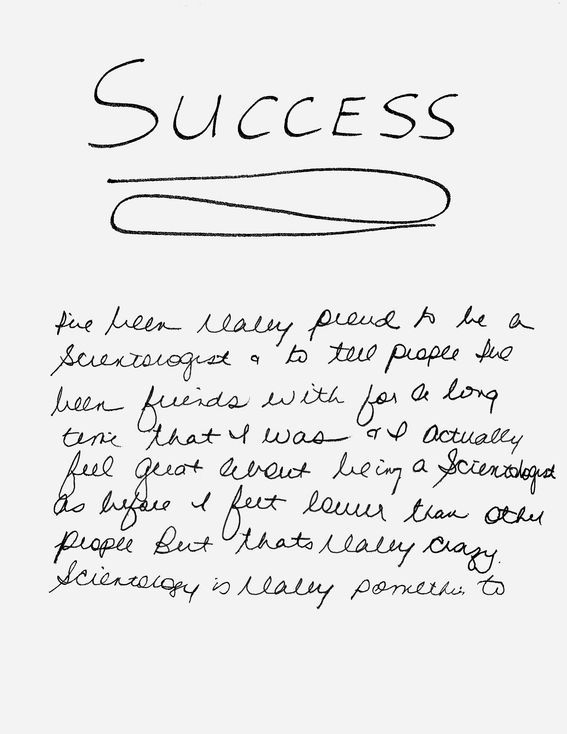 SUCCESS
I've been really proud to be a
Scientologist & to tell people I've
been friends with for a long
time that I was & I actually
feel great about being a Scientologist
as before I felt lower than other
people But thats really crazy.
Scientology is really somethin to